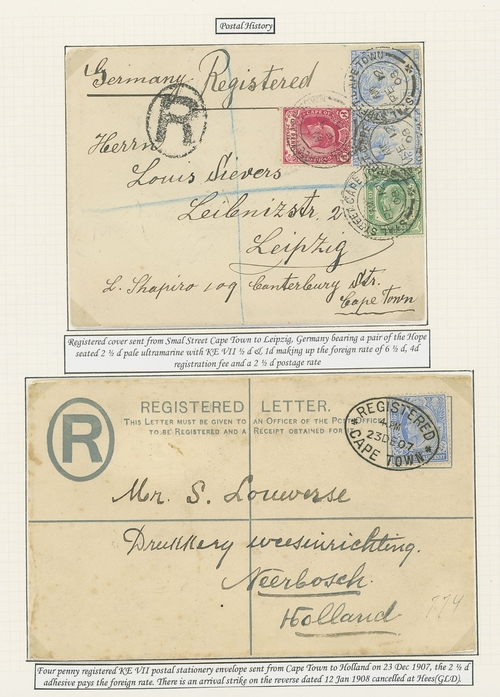 Postal History
Germany Registered
R
Herrn
Louis Sievers
Leibnizstr. 2
Leipzig
L. Shapiro 109 Canterbury Str.
Cape Town
Registered cover sent from Smal Street Cape Town to Leipzig, Germany bearing a pair of the Hope
seated 2 ½ d pale ultramarine with KE VII ½ d & 1d making up the foreign rate of 6 ½ d, 4d
registration fee and a 2 ½ d postage rate
R
REGISTERED LETTER.
THIS LETTER MUST BE GIVEN TO AN OFFICER OF THE POST OFFICE
TO BE REGISTERED AND A RECEIPT OBTAINED FOR
REGISTERED
4 PM
23 DE 07
CAPE TOWN
Mr. S. Louwerse
Drukkery weesinrichting.
Neerbosch.
Holland
774
Four penny registered KE VII postal stationery envelope sent from Cape Town to Holland on 23 Dec 1907, the 2 ½ d
adhesive pays the foreign rate. There is an arrival strike on the reverse dated 12 Jan 1908 cancelled at Hees(GL/D).